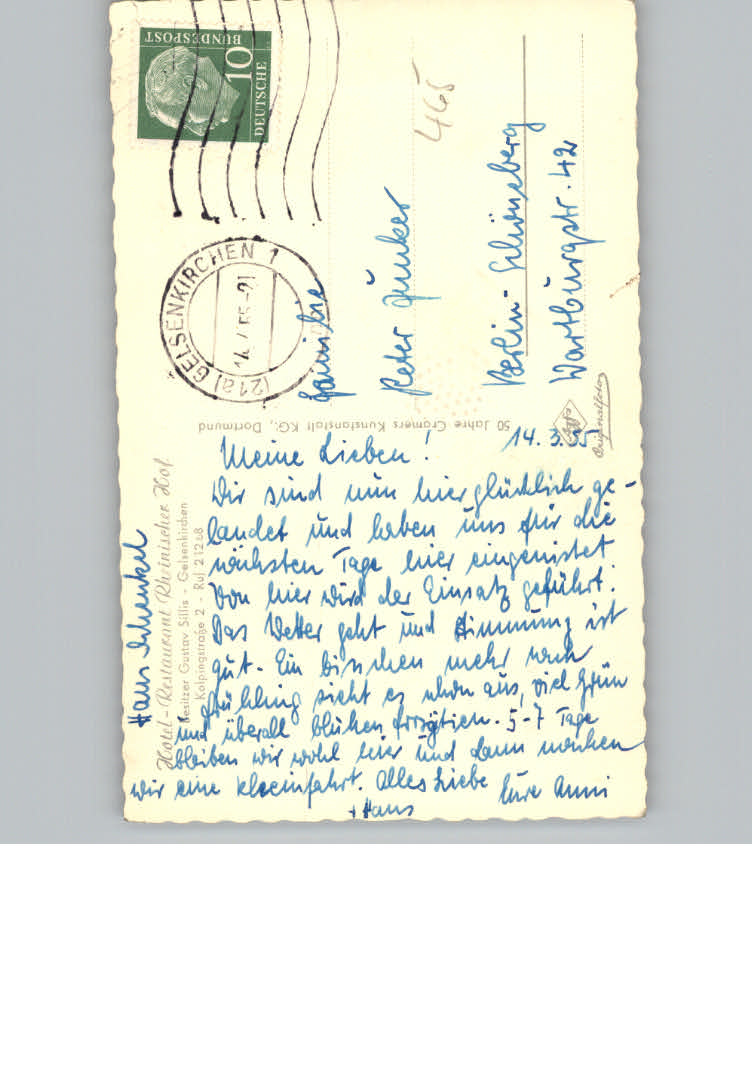 DEUTSCHE
BUNDESPOST
10
465
(21a) GELSENKIRCHEN 1
Familie
Peter Junker
Berlin-Schöneberg
Wartburgstr. 42
50 Jahre Cramers Kunstanstalt KG., Dortmund
Originalfoto
Hotel-Restaurant Rheinischer Hof
Besitzer Gustav Sillis - Gelsenkirchen
Kolpingstraße 2 - Ruf 21268
Hans Schenkel
14.3.55
Meine Lieben!
Wir sind nun hier glücklich ge-
landet und haben uns für die
nächsten Tage hier eingenistet
Von hier wird der Einsatz geführt.
Das Wetter geht und Stimmung ist
gut. Ein bischen mehr nach
Frühling sieht es schon aus, viel Grün
und überall blühen Forsytien. 5-7 Tage
bleiben wir wohl hier und dann machen
wir eine Rheinfahrt. Alles Liebe Eure Anni
+ Hans